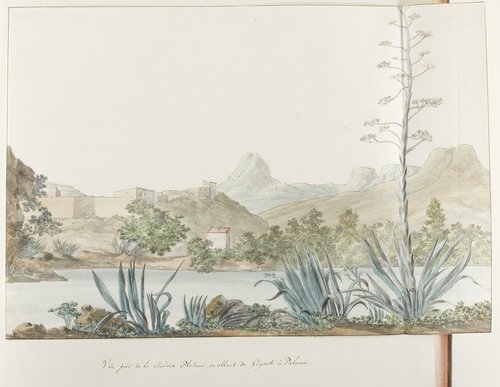 Vue près de la Rivière Platani, en allant de Girgenti à Palerme.